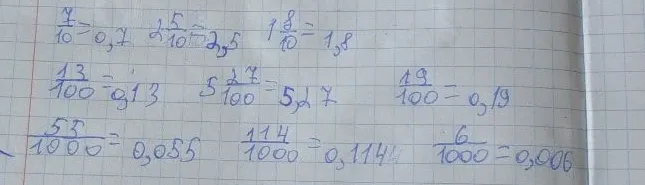 7/10 = 0,7 2 5/10 = 2,5 1 8/10 = 1,8
13/100 = 0,13 5 27/100 = 5,27 19/100 = 0,19
55/1000 = 0,055 114/1000 = 0,114 6/1000 = 0,006